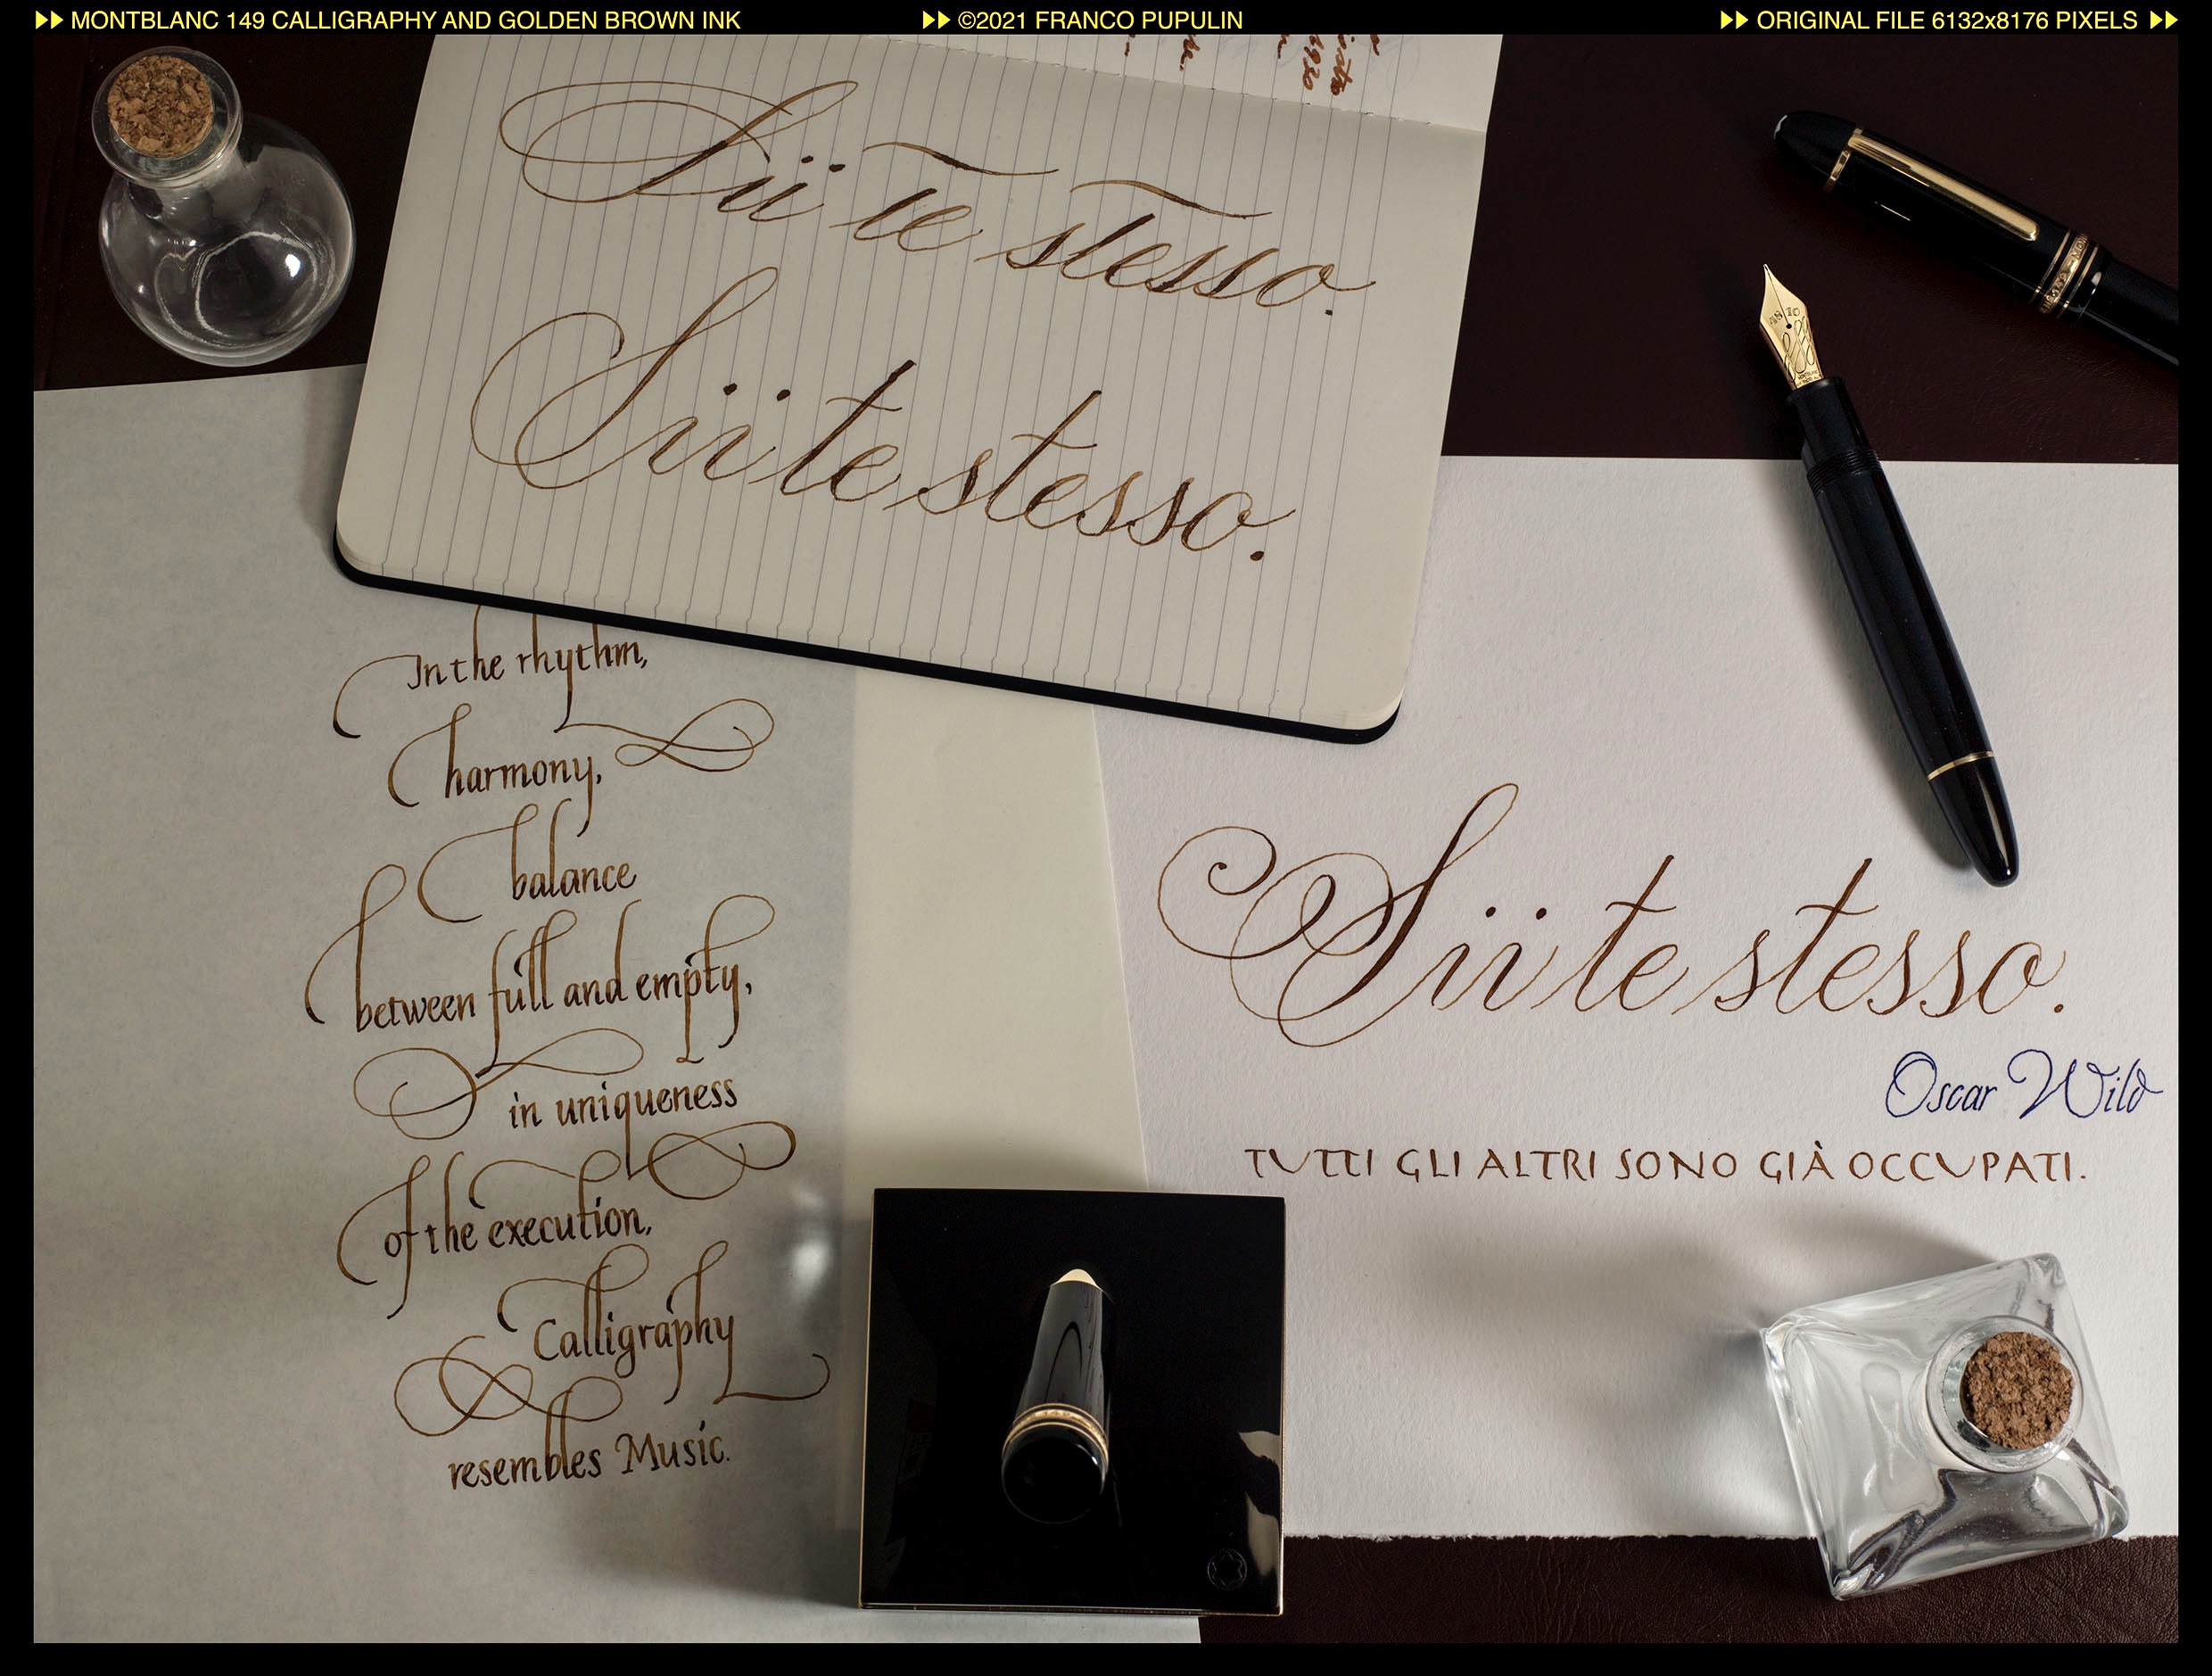 MONTBLANC 149 CALLIGRAPHY AND GOLDEN BROWN INK
©2021 FRANCO PUPULIN
ORIGINAL FILE 6132x8176 PIXELS
Sii te stesso.
Sii te stesso.
In the rhythm,
harmony,
balance
between full and empty,
in uniqueness
of the execution,
Calligraphy
resembles Music.
Sii te stesso.
Oscar Wild
TUTTI GLI ALTRI SONO GIÀ OCCUPATI.